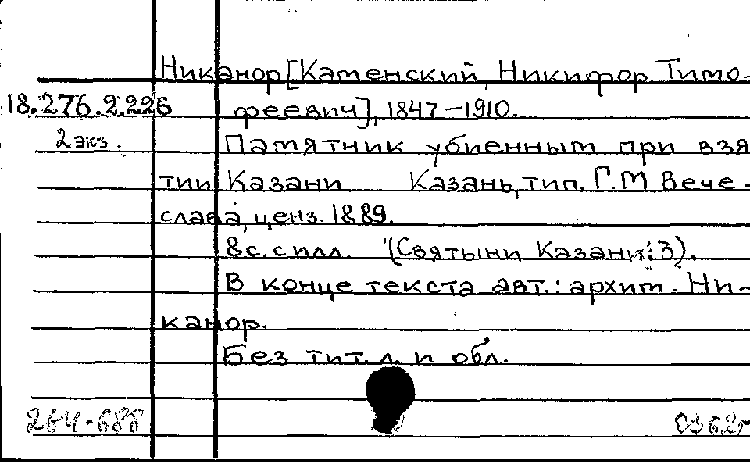 Никанор [Каменский, Никифор Тимо-
18.276.2.226 феевич], 1847-1910.
2 экз. Памятник убиенным при взя
тии Казани Казань, тип. Г.М Вече-
слава, ценз. 1889.
8с. с илл. (Святыни Казани: 3).
В конце текста авт.: архим. Ни-
канор.
Без тит. л. и обл.
264-688